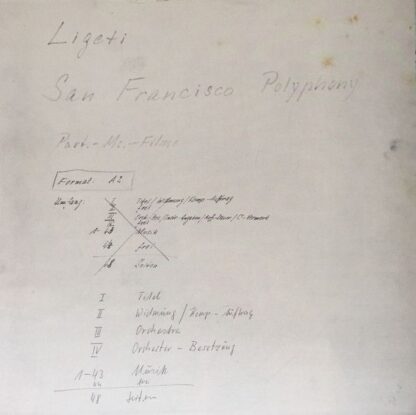 Ligeti
San Francisco Polyphony
Part.-Ms.-Filme
Format: A2
Umfang: I Titel / Widmung / Komp.-Auftrag
II frei
1-43 Musik
44 frei
48 Seiten
I Titel
II Widmung / Komp.-Auftrag
III Orchestra
IV Orchester-Besetzung
1-43 Musik
44
48 Seiten